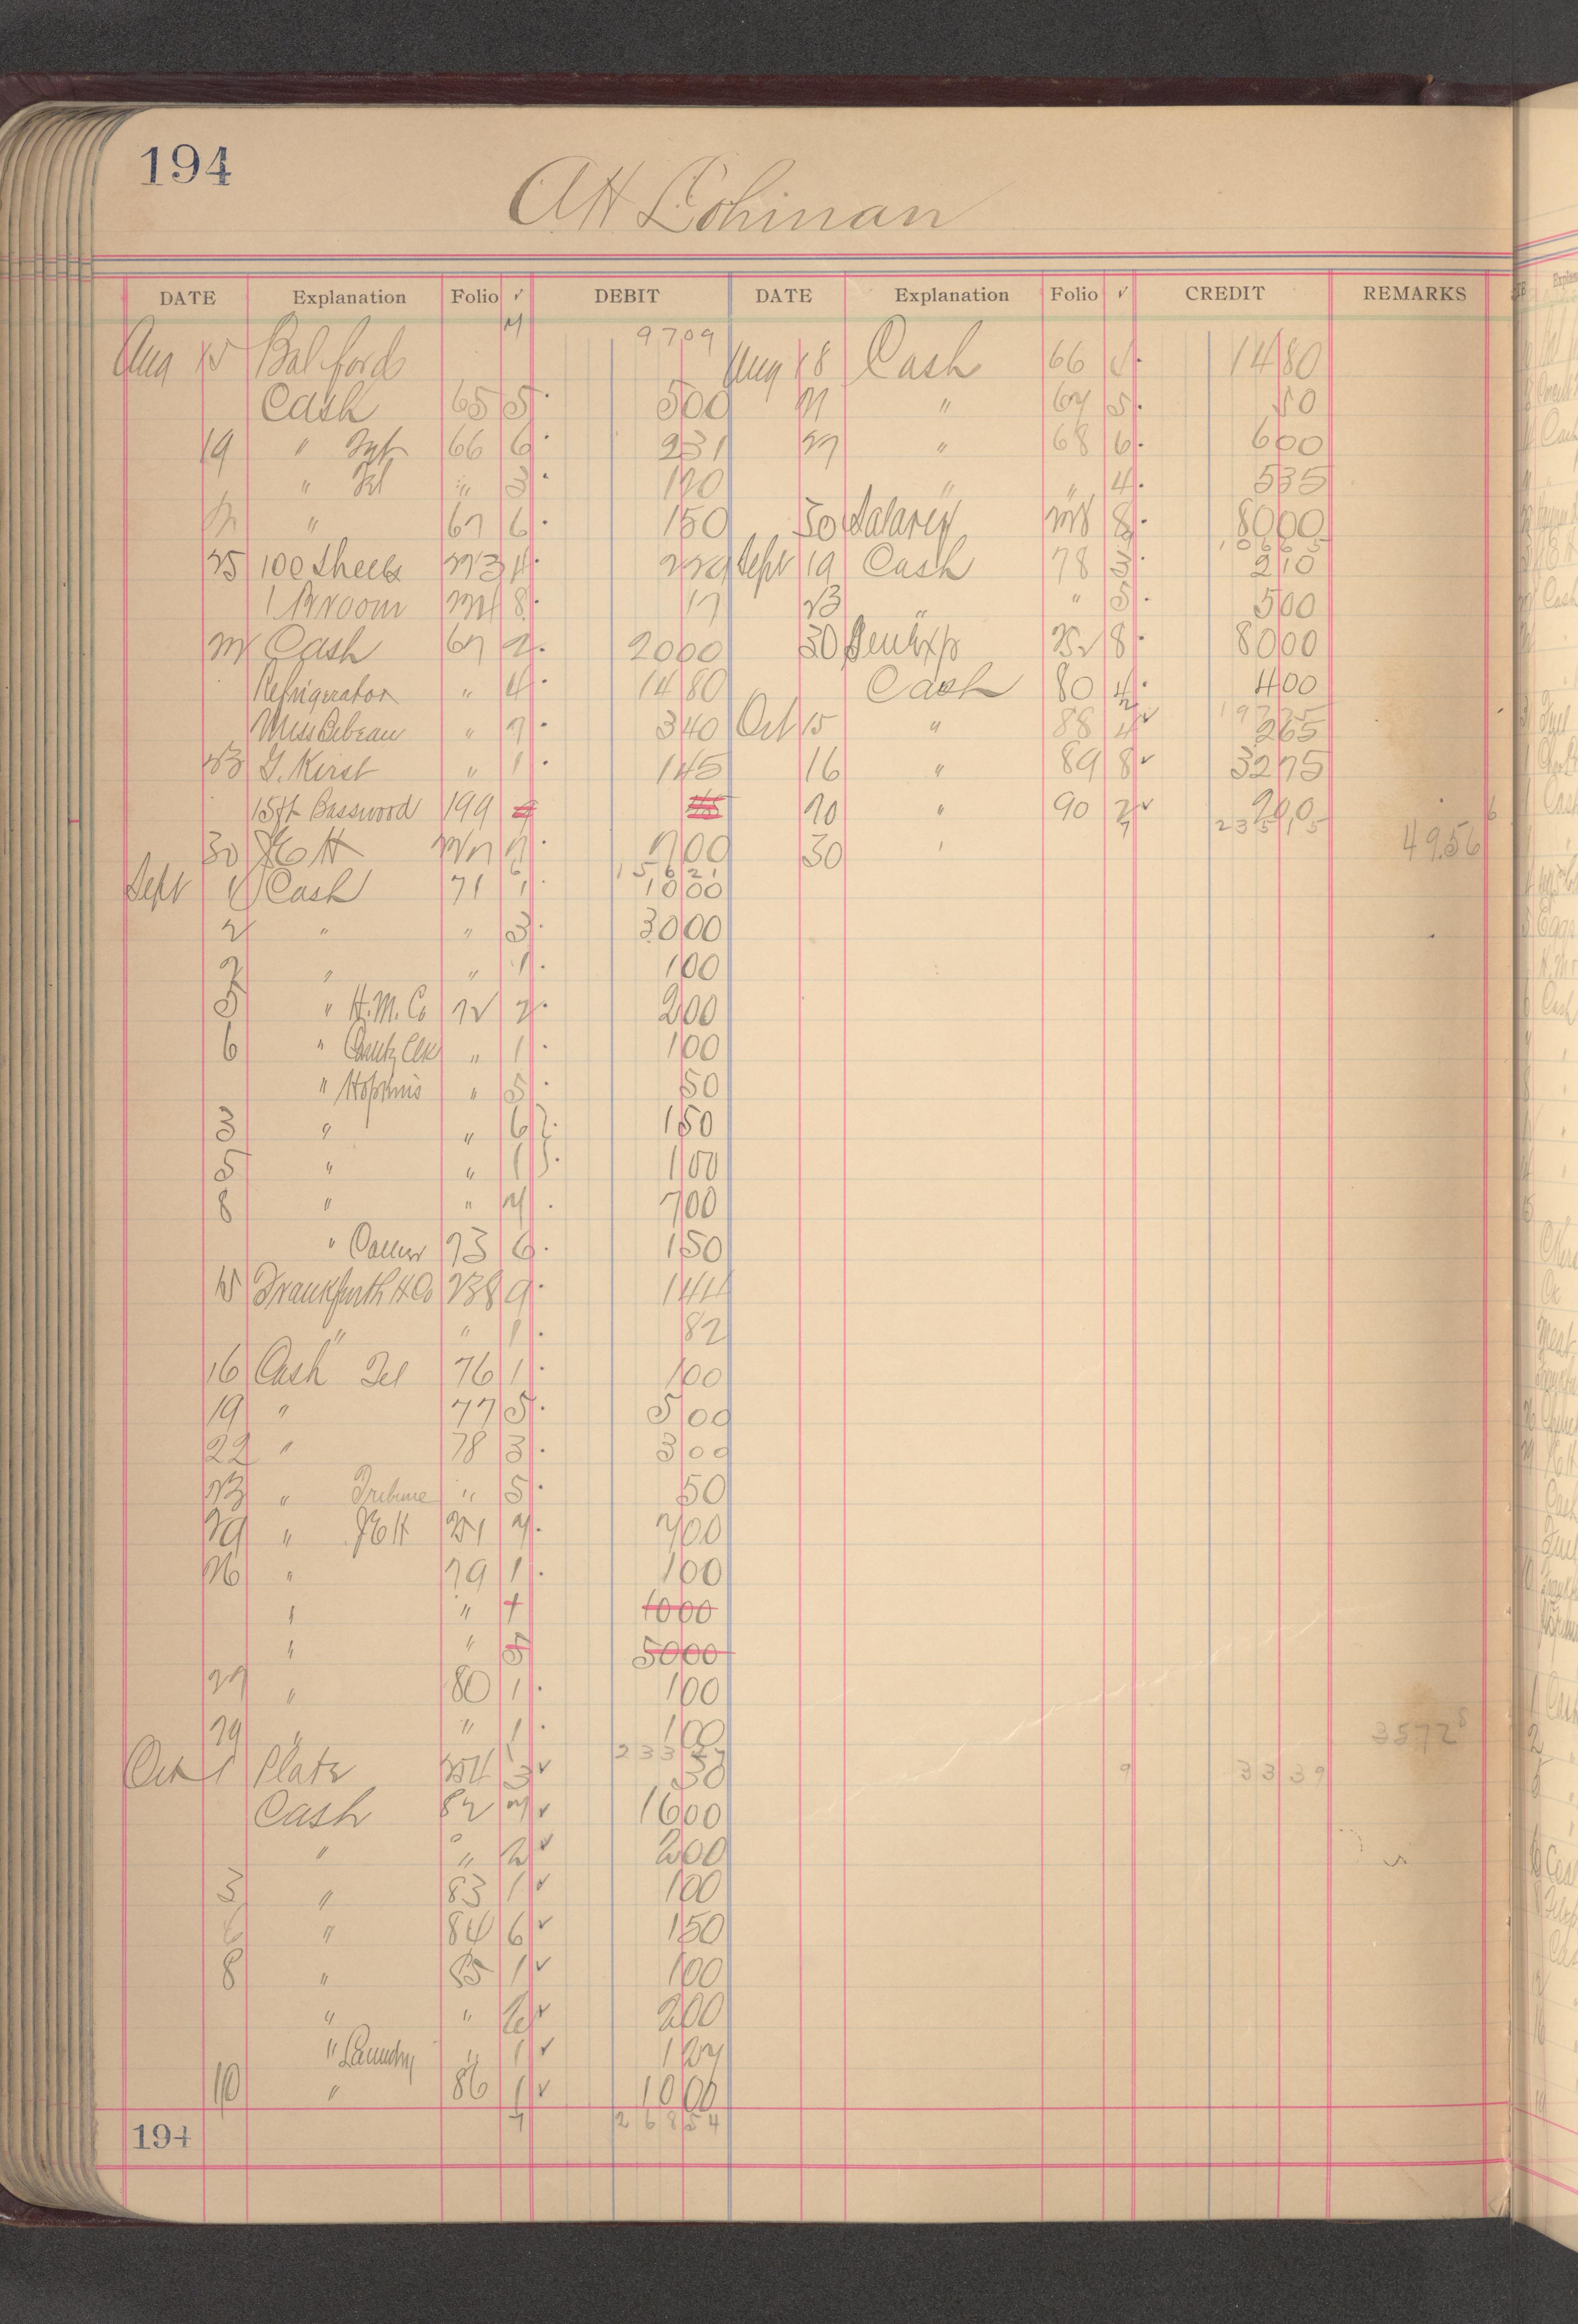 194
AH Lohman
DATE Explanation Folio ✓ DEBIT DATE Explanation Folio ✓ CREDIT REMARKS
Aug 15 Bal forbd 9709 Aug 18 Cash 66 1480
Cash 65 5 500 " 67 5 50
19 " 66 6 231 " 68 6 600
" Tel " 3 120 " " 4 535
" 67 6 150 30 Salarey 8 8000
25 100 Sheets 4 229 Sept 19 Cash 78 3 210
1 Broom 8 17 23 " " 5 500
Cash 67 2 2000 30 Gen Exp 8 8000
Refrigerator " 4 1480 Cash 80 4 400
Miss Bebeau " 7 340 Oct 15 " 88 4 265
23 G. Kirst " 1 145 16 " 89 8 3275
15 ft Basswood 199 20 " 90 2 200
23515
30 JEH 7 700 30 4956
15621
Sept 1 Cash 71 1 1000
2 " " 3 3000
2 " " 1 100
5 " H.M. Co 72 2 200
6 " " 1 100
" Hopkins " 5 50
3 " " 6 150
5 " " 1 100
8 " " 7 700
" 73 6 150
15 Frankfurth H Co 238 9 144
" " 1 82
16 Cash Tel 76 1 100
19 " 77 5 500
22 " 78 3 300
23 " Tribune " 5 50
29 " JEH 251 7 700
26 " 79 1 100
" " 1 1000
" " 5 5000
27 " 80 1 100
29 " " 1 100
35728
23327
Oct 1 Platz 254 3 30 9 3339
Cash 82 7 1600
" " 2 200
3 " 83 1 100
6 " 84 6 150
8 " 85 1 100
" " 2 200
" Laundry " 1 127
10 " 86 1 1000
26854
194